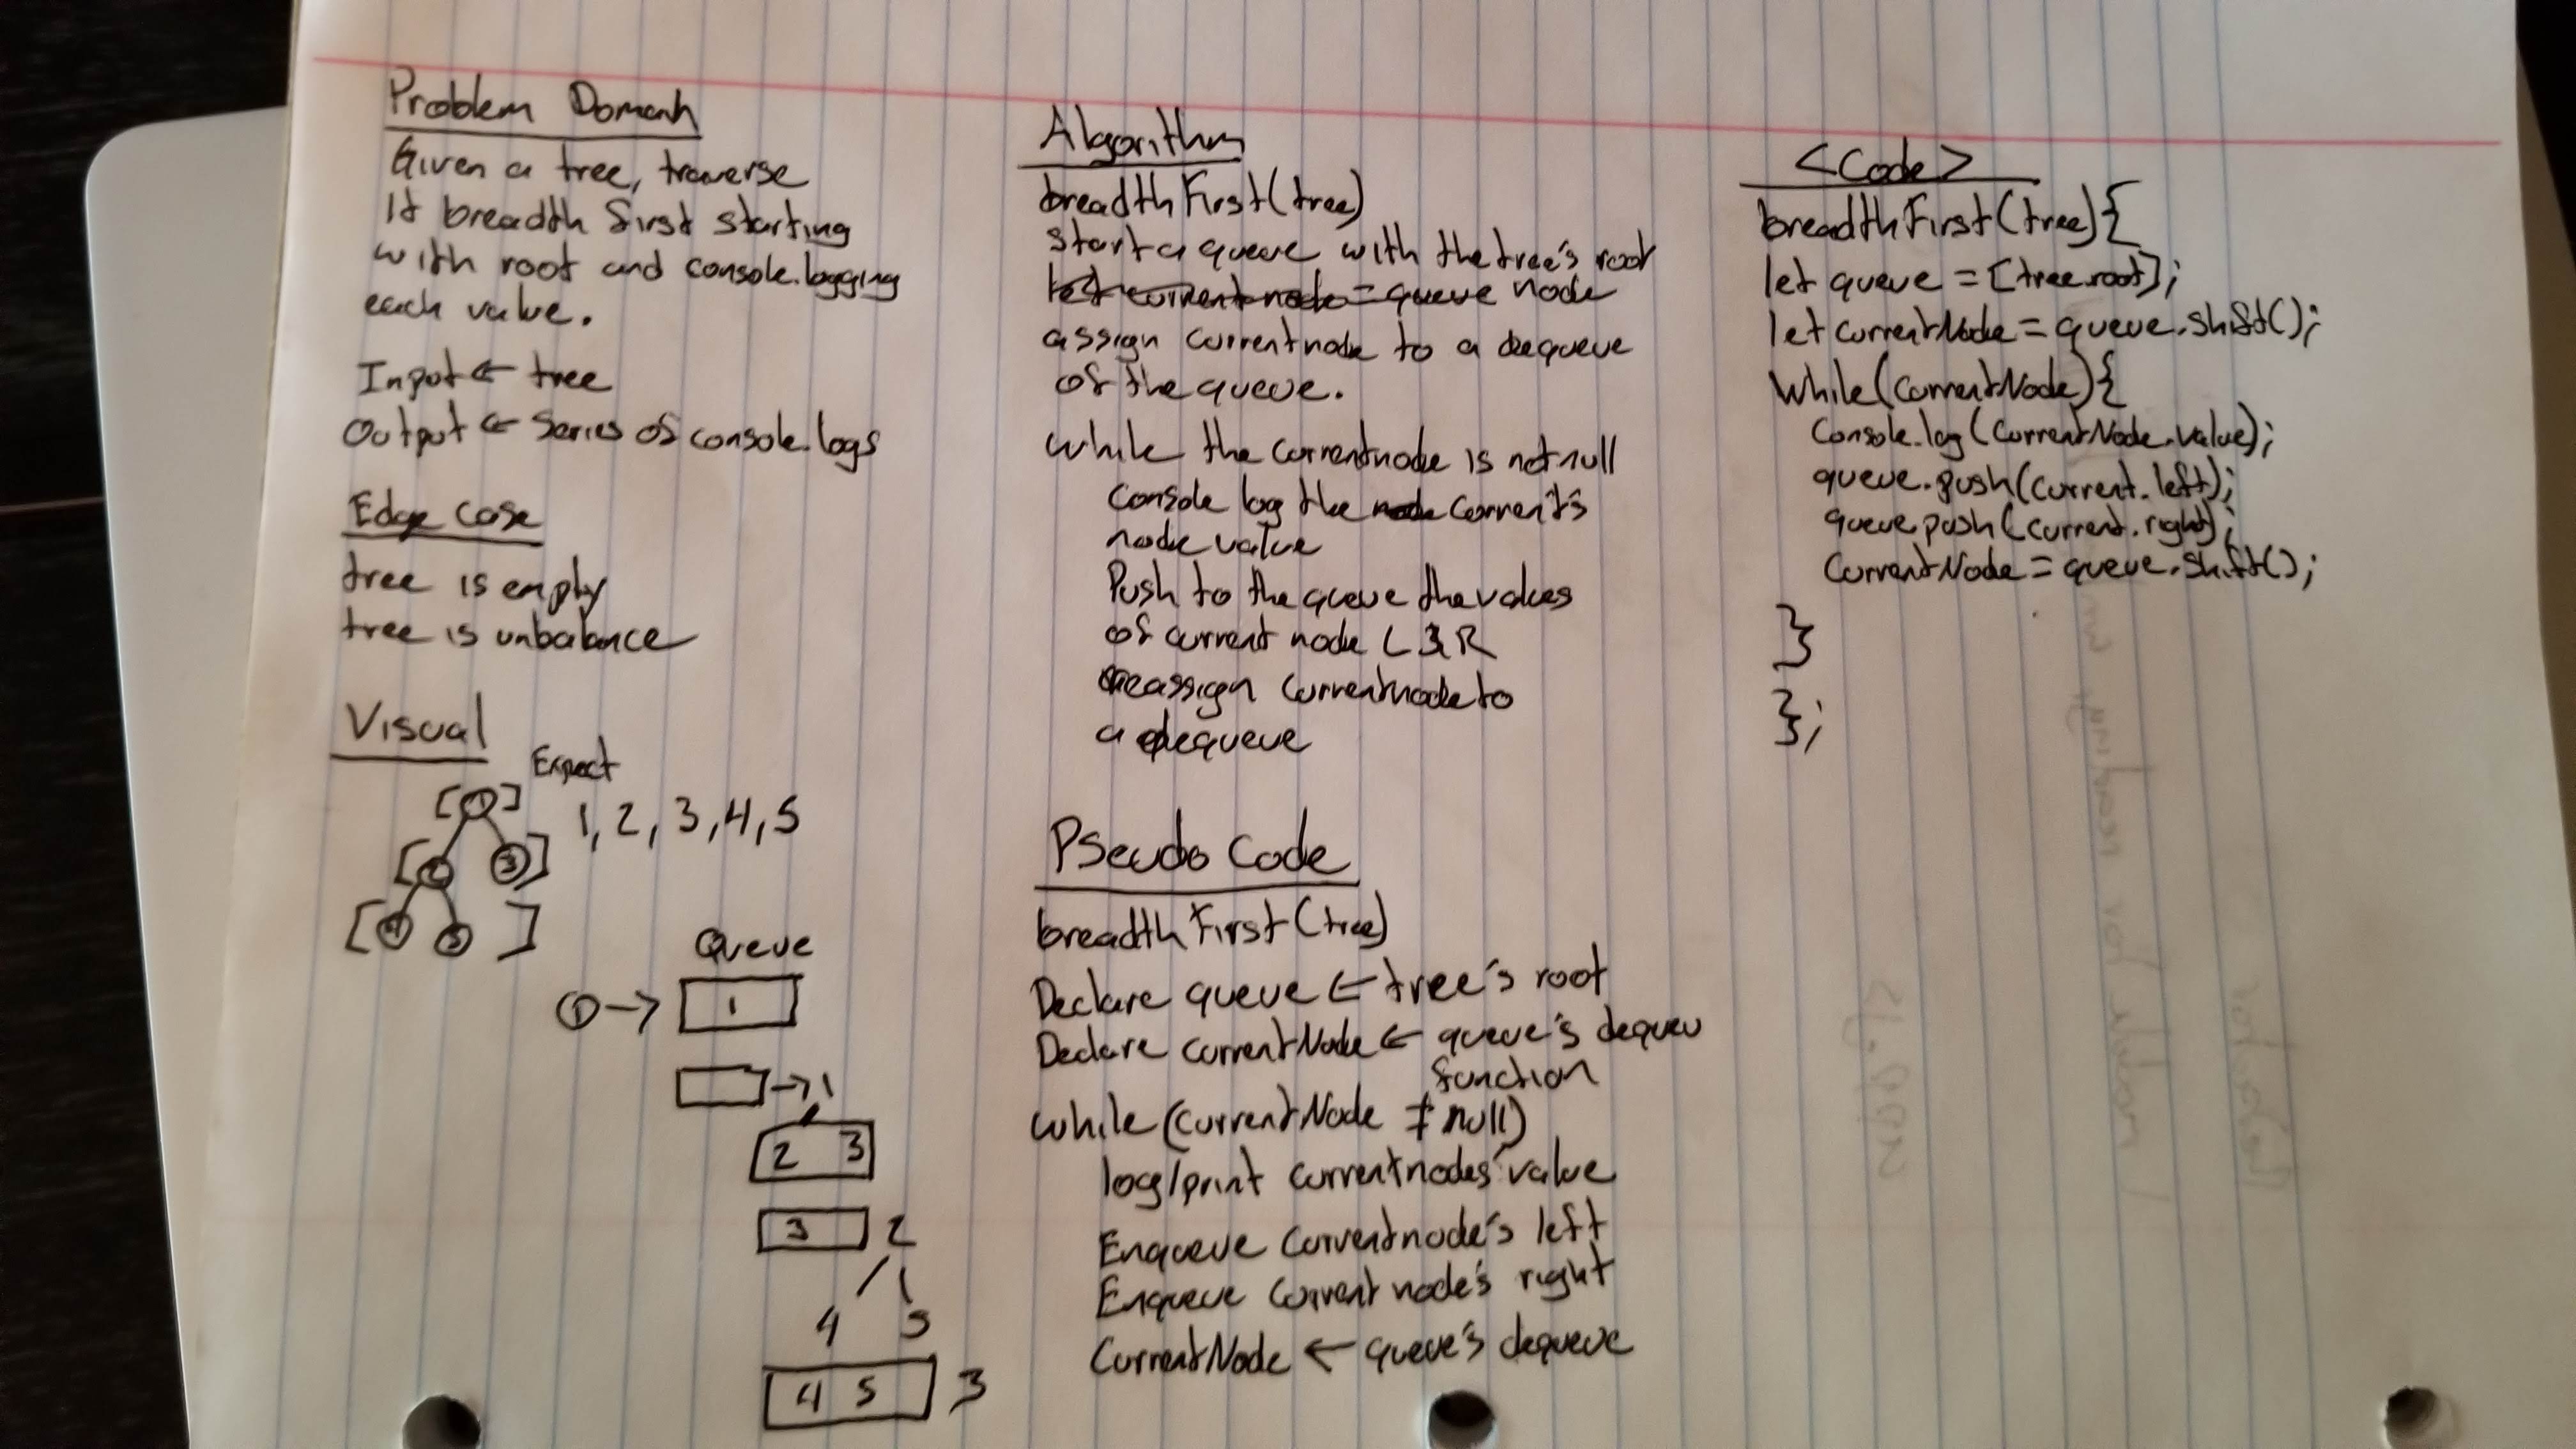 Problem Domain
Given a tree, traverse
It breadth first starting
with root and console.logging
each value.
Input ← tree
Output ← Series of console.logs
Edge Case
tree is empty
tree is unbalance
Visual
Expect
[1]
1, 2, 3, 4, 5
[2 3]
[4 5 ]
Queue
1 → 1
→ 1
2 3
3 2
4 5
4 5 3
Algorithm
breadthFirst(tree)
Start a queue with the tree's root
let current node = queue node
assign currentnode to a dequeue
of the queue.
while the currentnode is not null
Console log the node current's
node value
Push to the queue the values
of current node L & R
reassign currentnode to
a dequeue
Pseudo Code
breadthFirst(tree)
Declare queue ← tree's root
Declare currentNode ← queue's dequeu
function
while(currentNode ≠ null)
log/print currentnodes' value
Enqueue currentnode's left
Enqueue current node's right
CurrentNode ← queue's dequeue
<Code>
breadthFirst(tree){
let queue = [tree.root];
let currentNode = queue.shift();
While(currentNode){
Console.log(currentNode.value);
queue.push(current.left);
queue.push(current.right);
CurrentNode = queue.shift();
}
};